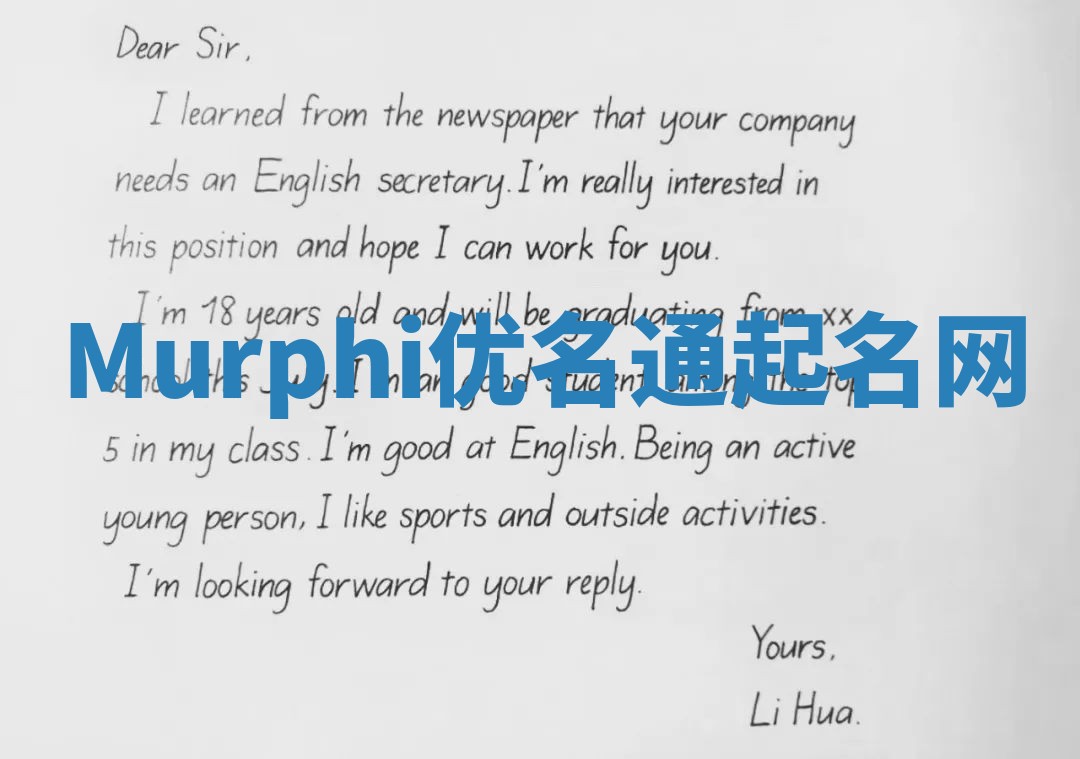 Dear Sir,
I learned from the newspaper that your company
needs an English secretary. I'm really interested in
this position and hope I can work for you.
I'm 18 years old and will be graduating from xx
Murphi优名通起名网
school this July. I'm an good student among the top
5 in my class. I'm good at English. Being an active
young person, I like sports and outside activities.
I'm looking forward to your reply.
Yours,
Li Hua.